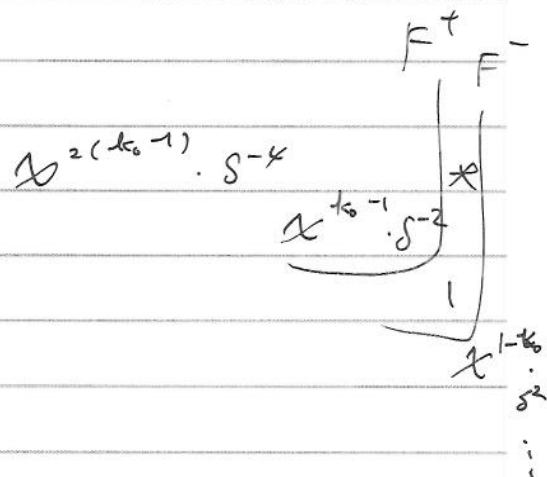 F⁺ F⁻
χ^{2(k₀-1)} · δ^{-4} *
χ^{k₀-1} · δ^{-2}
1
χ^{1-k₀}
·
δ²